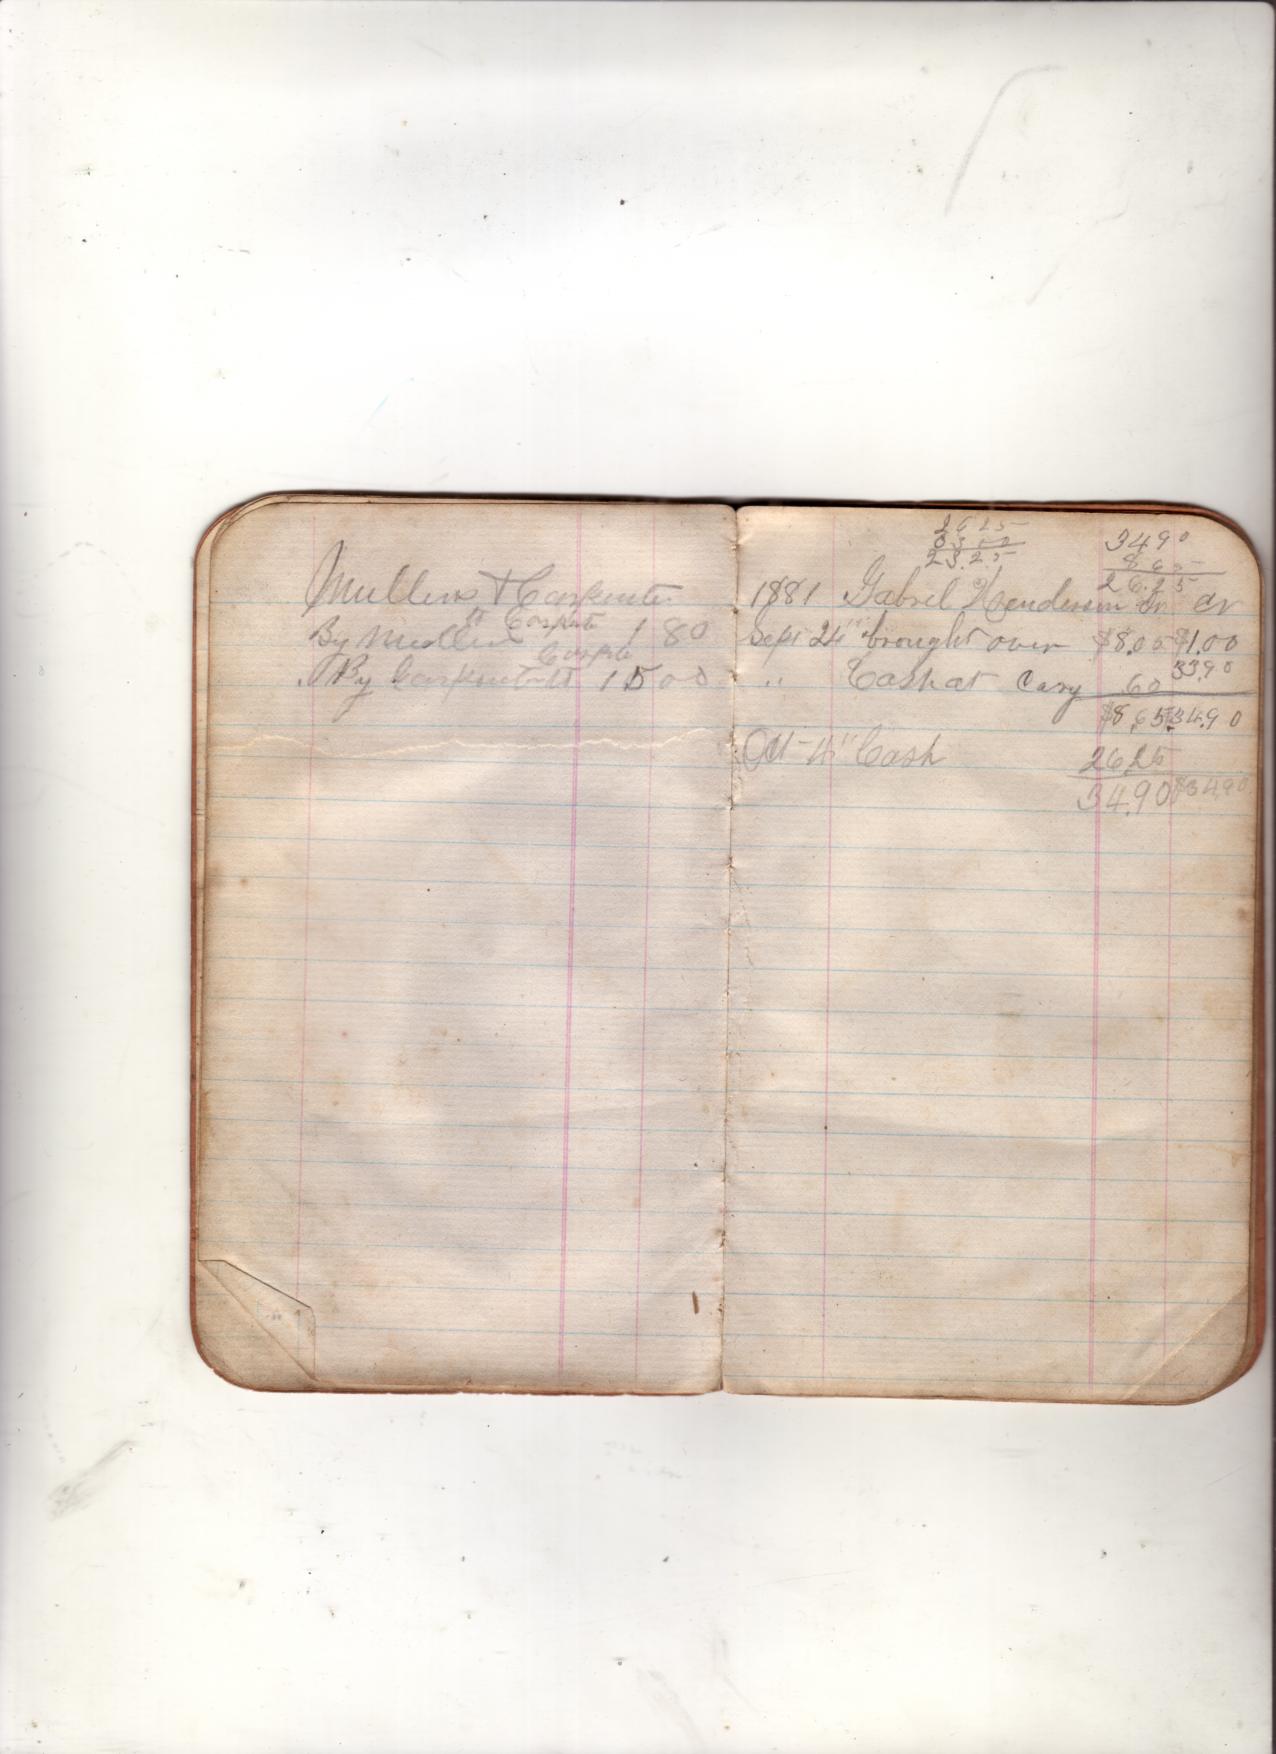 Mullens & Carpenter
By Mullen 1 80
By Carpenter 15 00
2625
0300
23.25
3490
865
26.25
1881 Gabrel Henderson dr cr
Sept 24" brought over $8.05 $1.00
" Cash at Cary .60 33.90
$8.65 $34.90
Oct - 4" Cash 26.25
34.90 $34.90